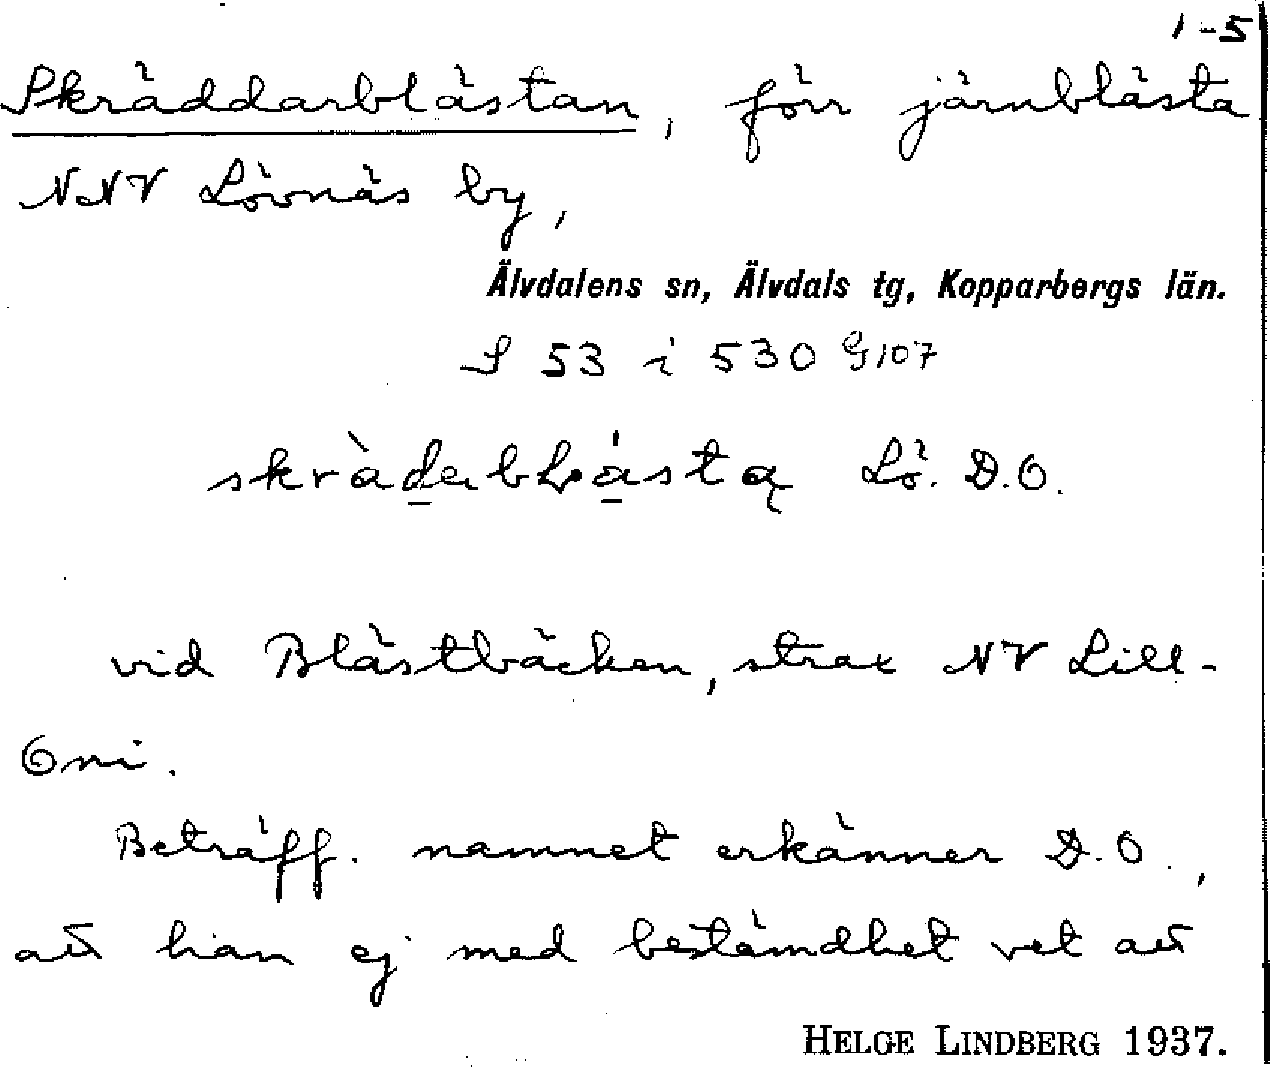 1-5
Skräddarblästan, förr järnblästa
NNV Lövnäs by,
Älvdalens sn, Älvdals tg, Kopparbergs län.
S 53 i 530 G107
Lö. D.O.
vid Blästbäcken, strax NV Lill-
Omi.
Beträff. namnet erkänner D.O.,
att han ej med bestämdhet vet att
HELGE LINDBERG 1937.